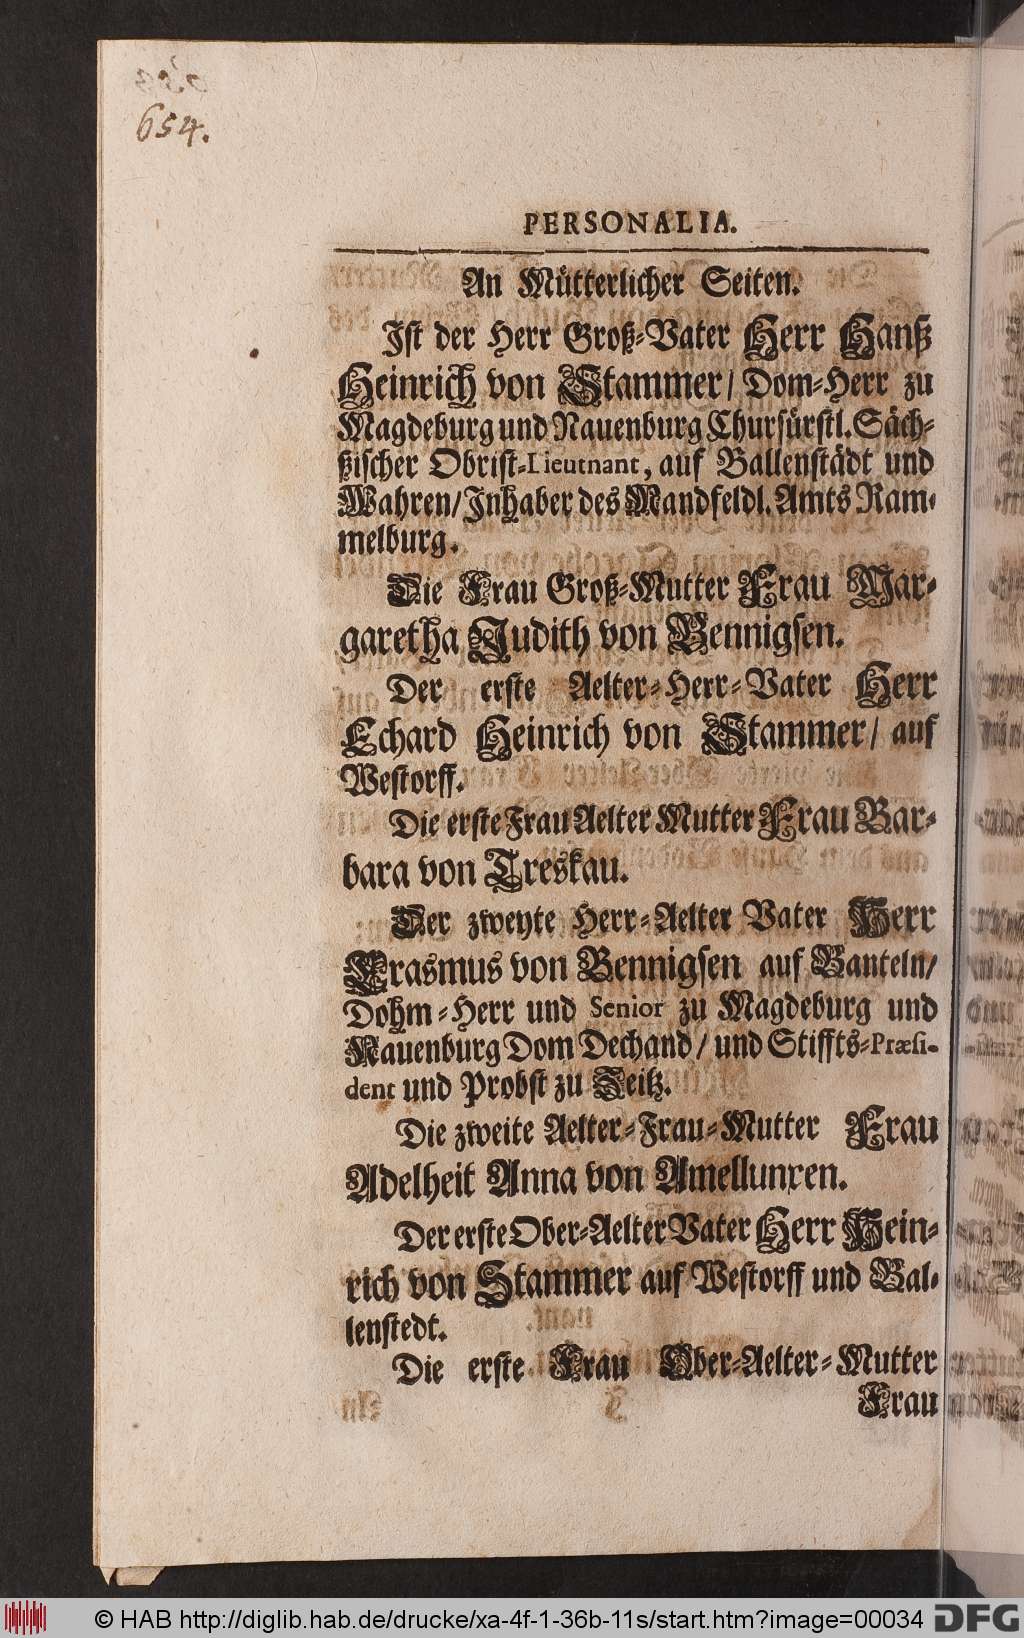 654.
PERSONALIA.
An Mütterlicher Seiten.
Ist der Herr Groß-Vater Herr Hanß
Heinrich von Stammer/ Dom-Herr zu
Magdeburg und Nauenburg Churfürstl. Säch-
ßischer Obrist-Lieutnant, auf Ballenstädt und
Wahren/ Inhaber des Mandfeldl. Amts Ram-
melburg.
Die Frau Groß-Mutter Frau Mar-
garetha Judith von Bennigsen.
Der erste Aelter-Herr-Vater Herr
Echard Heinrich von Stammer/ auf
Westorff.
Die erste Frau Aelter Mutter Frau Bar-
bara von Treskau.
Der zweyte Herr-Aelter Vater Herr
Erasmus von Bennigsen auf Banteln/
Dohm-Herr und Senior zu Magdeburg und
Nauenburg Dom Dechand/ und Stiffts-Præsi-
dent und Probst zu Zeitz.
Die zweite Aelter-Frau-Mutter Frau
Adelheit Anna von Amellunxen.
Der erste Ober-Aelter Vater Herr Hein-
rich von Stammer auf Westorff und Bal-
lenstedt.
Die erste Frau Ober-Aelter-Mutter
Frau
© HAB http://diglib.hab.de/drucke/xa-4f-1-36b-11s/start.htm?image=00034
DFG